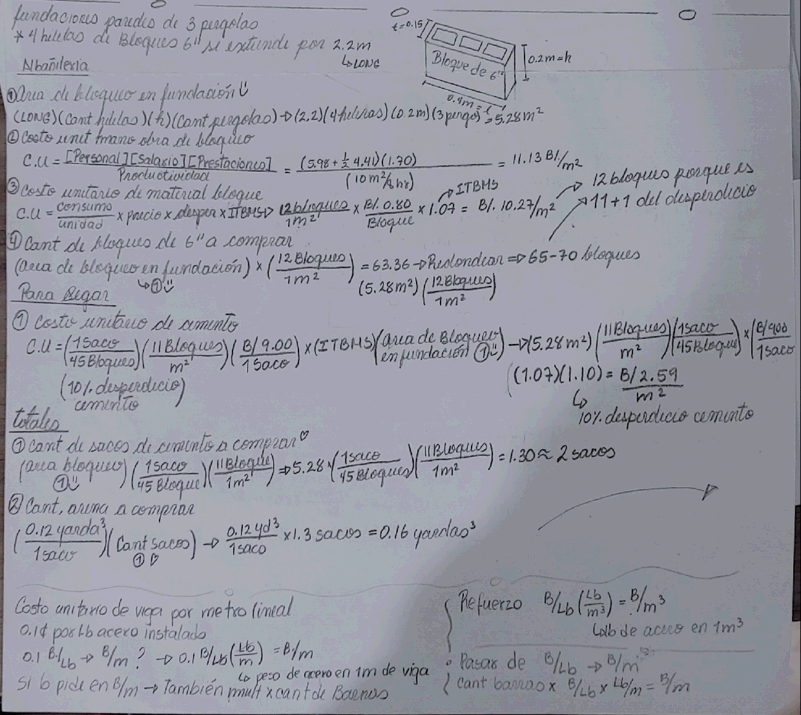 fundaciones paredes de 3 pergolas
* 4 hileras de Bloques 6" si extiende por 2.2m
↳ LONG
t=0.15
Bloque de 6"
0.2m=h
0.4m=L
Albañilería
① Area de bloqueo en fundación
(LONG)(Cant hileras)(h)(Cant pergolas) → (2.2)(4 hileras)(0.2m)(3 pergo) = 5.28m²
② Costo unit mano obra de bloqueo
C.U = [Personal][Salario][Prestaciones] / Productividad = (5.98 + 1/2 4.41)(1.70) / (10m²/8hr) = 11.13 B/m²
③ Costo unitario de material bloque
C.U = consumo/unidad x precio x desper x ITBMS → 12 bloques/1m² x B/. 0.80/Bloque x 1.07 = B/. 10.27/m²
ITBMS
12 bloques porque es
11+1 del desperdicio
④ Cant de bloques de 6" a comprar
(area de bloqueo en fundación) x (12 Bloques/1m²) = 63.36 → Redondear ⇒ 65-70 bloques
↳ ①
(5.28m²)(12Bloques/1m²)
Para Pegar
① Costo unitario de cemento
C.U = (1 saco/45 Bloques)(11 Bloques/m²)(B/9.00/1 Saco) x (ITBMS)(area de Bloqueo en fundación ①) → (5.28m²)(11 Bloques/m²)(1 saco/45 Bloques) x (B/9.00/1 saco)
(10% desperdicio)
cemento
(1.07)(1.10) = B/2.59/m²
↳ 10% desperdicio cemento
totales
① Cant de sacos de cemento a comprar ♡
(area bloqueo)(1 saco/45 Bloque)(11 Bloque/1m²) ⇒ 5.28 x (1 saco/45 Bloques)(11 Bloques/1m²) = 1.30 ≈ 2 sacos
①
② Cant, arena a comprar
(0.12 yarda³/1 saco)(Cant Sacos) → 0.12 yd³/1 saco x 1.3 sacos = 0.16 yardas³
① ♡
Costo unitario de viga por metro lineal
0.1¢ por Lb acero instalado
0.1 B/Lb → B/m? → 0.1 B/Lb (Lb/m) = B/m
↳ peso de acero en 1m de viga
Si lo pide en B/m → También mult x cant de Barras
Refuerzo B/Lb (Lb/m³) = B/m³
↳ Lb de acero en 1m³
Pasar de B/Lb → B/m
Cant barras x B/Lb x Lb/m = B/m